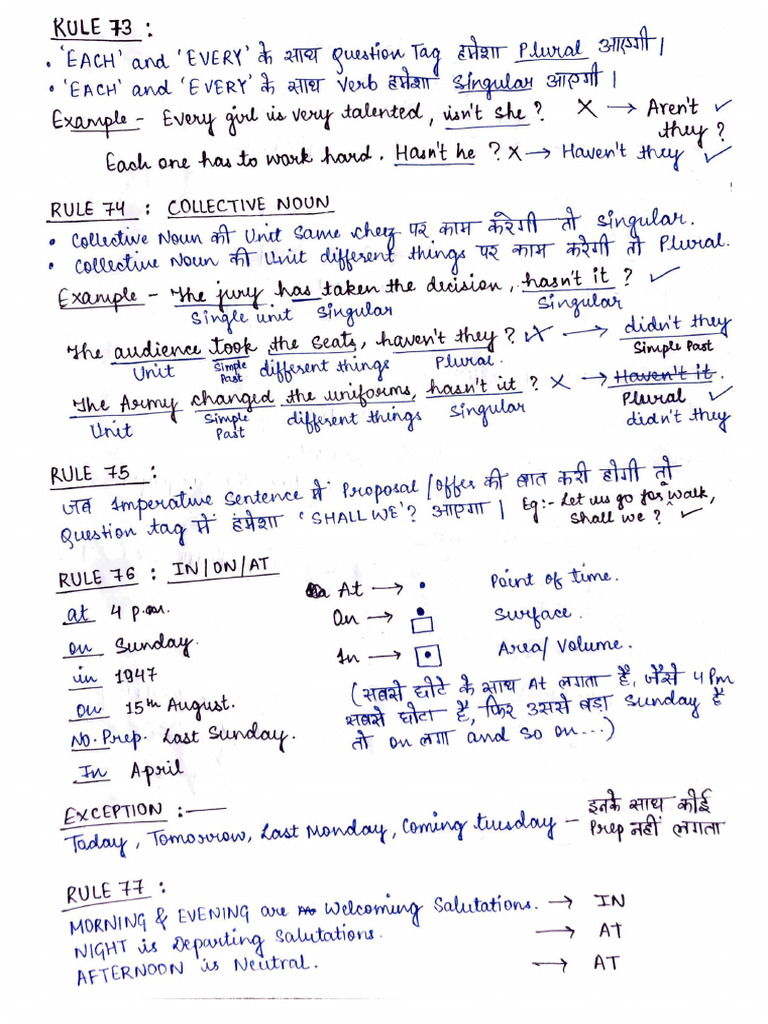 RULE 73 :
• 'EACH' and 'EVERY' के साथ Question Tag हमेशा Plural आएगी।
• 'EACH' and 'EVERY' के साथ Verb हमेशा Singular आएगी।
Example - Every girl is very talented, isn't she? X → Aren't they? ✓
Each one has to work hard. Hasn't he? X → Haven't they ✓
RULE 74 : COLLECTIVE NOUN
• Collective Noun की Unit Same चीज़ पर काम करेगी तो Singular.
• Collective Noun की Unit different things पर काम करेगी तो Plural.
Example - The jury has taken the decision, hasn't it? ✓
Single unit Singular Singular
The audience took the seats, haven't they? X → didn't they
Unit Simple Past different things Plural. Simple Past
The Army changed the uniforms, hasn't it? X → Haven't it.
Unit Simple Past different things Singular Plural ✓
didn't they
RULE 75 :
जब Imperative Sentence में Proposal/Offer की बात करी होगी तो
Question tag में हमेशा 'SHALL WE'? आएगा। Eg:- Let us go for walk,
Shall we? ✓
RULE 76 : IN/ON/AT
at 4 p.m.
on Sunday.
in 1947
on 15th August.
No. Prep. Last Sunday.
In April
At → • Point of time.
On → Surface.
In → Area/Volume.
(सबसे छोटे के साथ At लगता है, जैसे 4 Pm
सबसे छोटा है, फिर उससे बड़ा Sunday है
तो on लगा and so on...)
EXCEPTION :—
Today, Tomorrow, Last Monday, Coming Tuesday – इनके साथ कोई
Prep नहीं लगता
RULE 77 :
MORNING & EVENING are Welcoming Salutations. → IN
NIGHT is Departing Salutations. → AT
AFTERNOON is Neutral. → AT